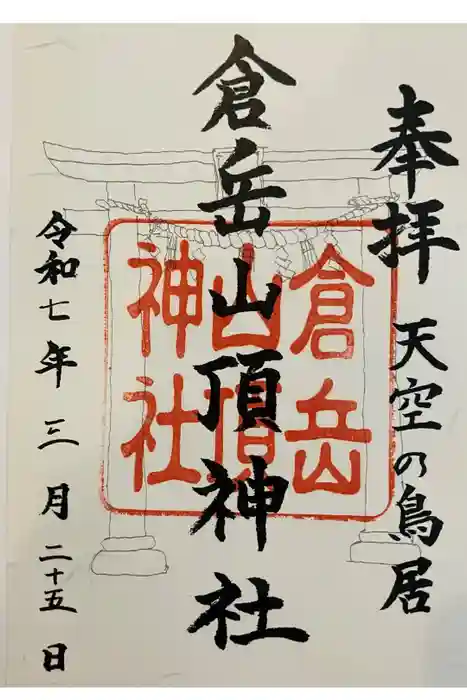 奉拝 天空の鳥居
倉岳山頂神社
倉岳
山頂
神社
令和七年三月二十五日